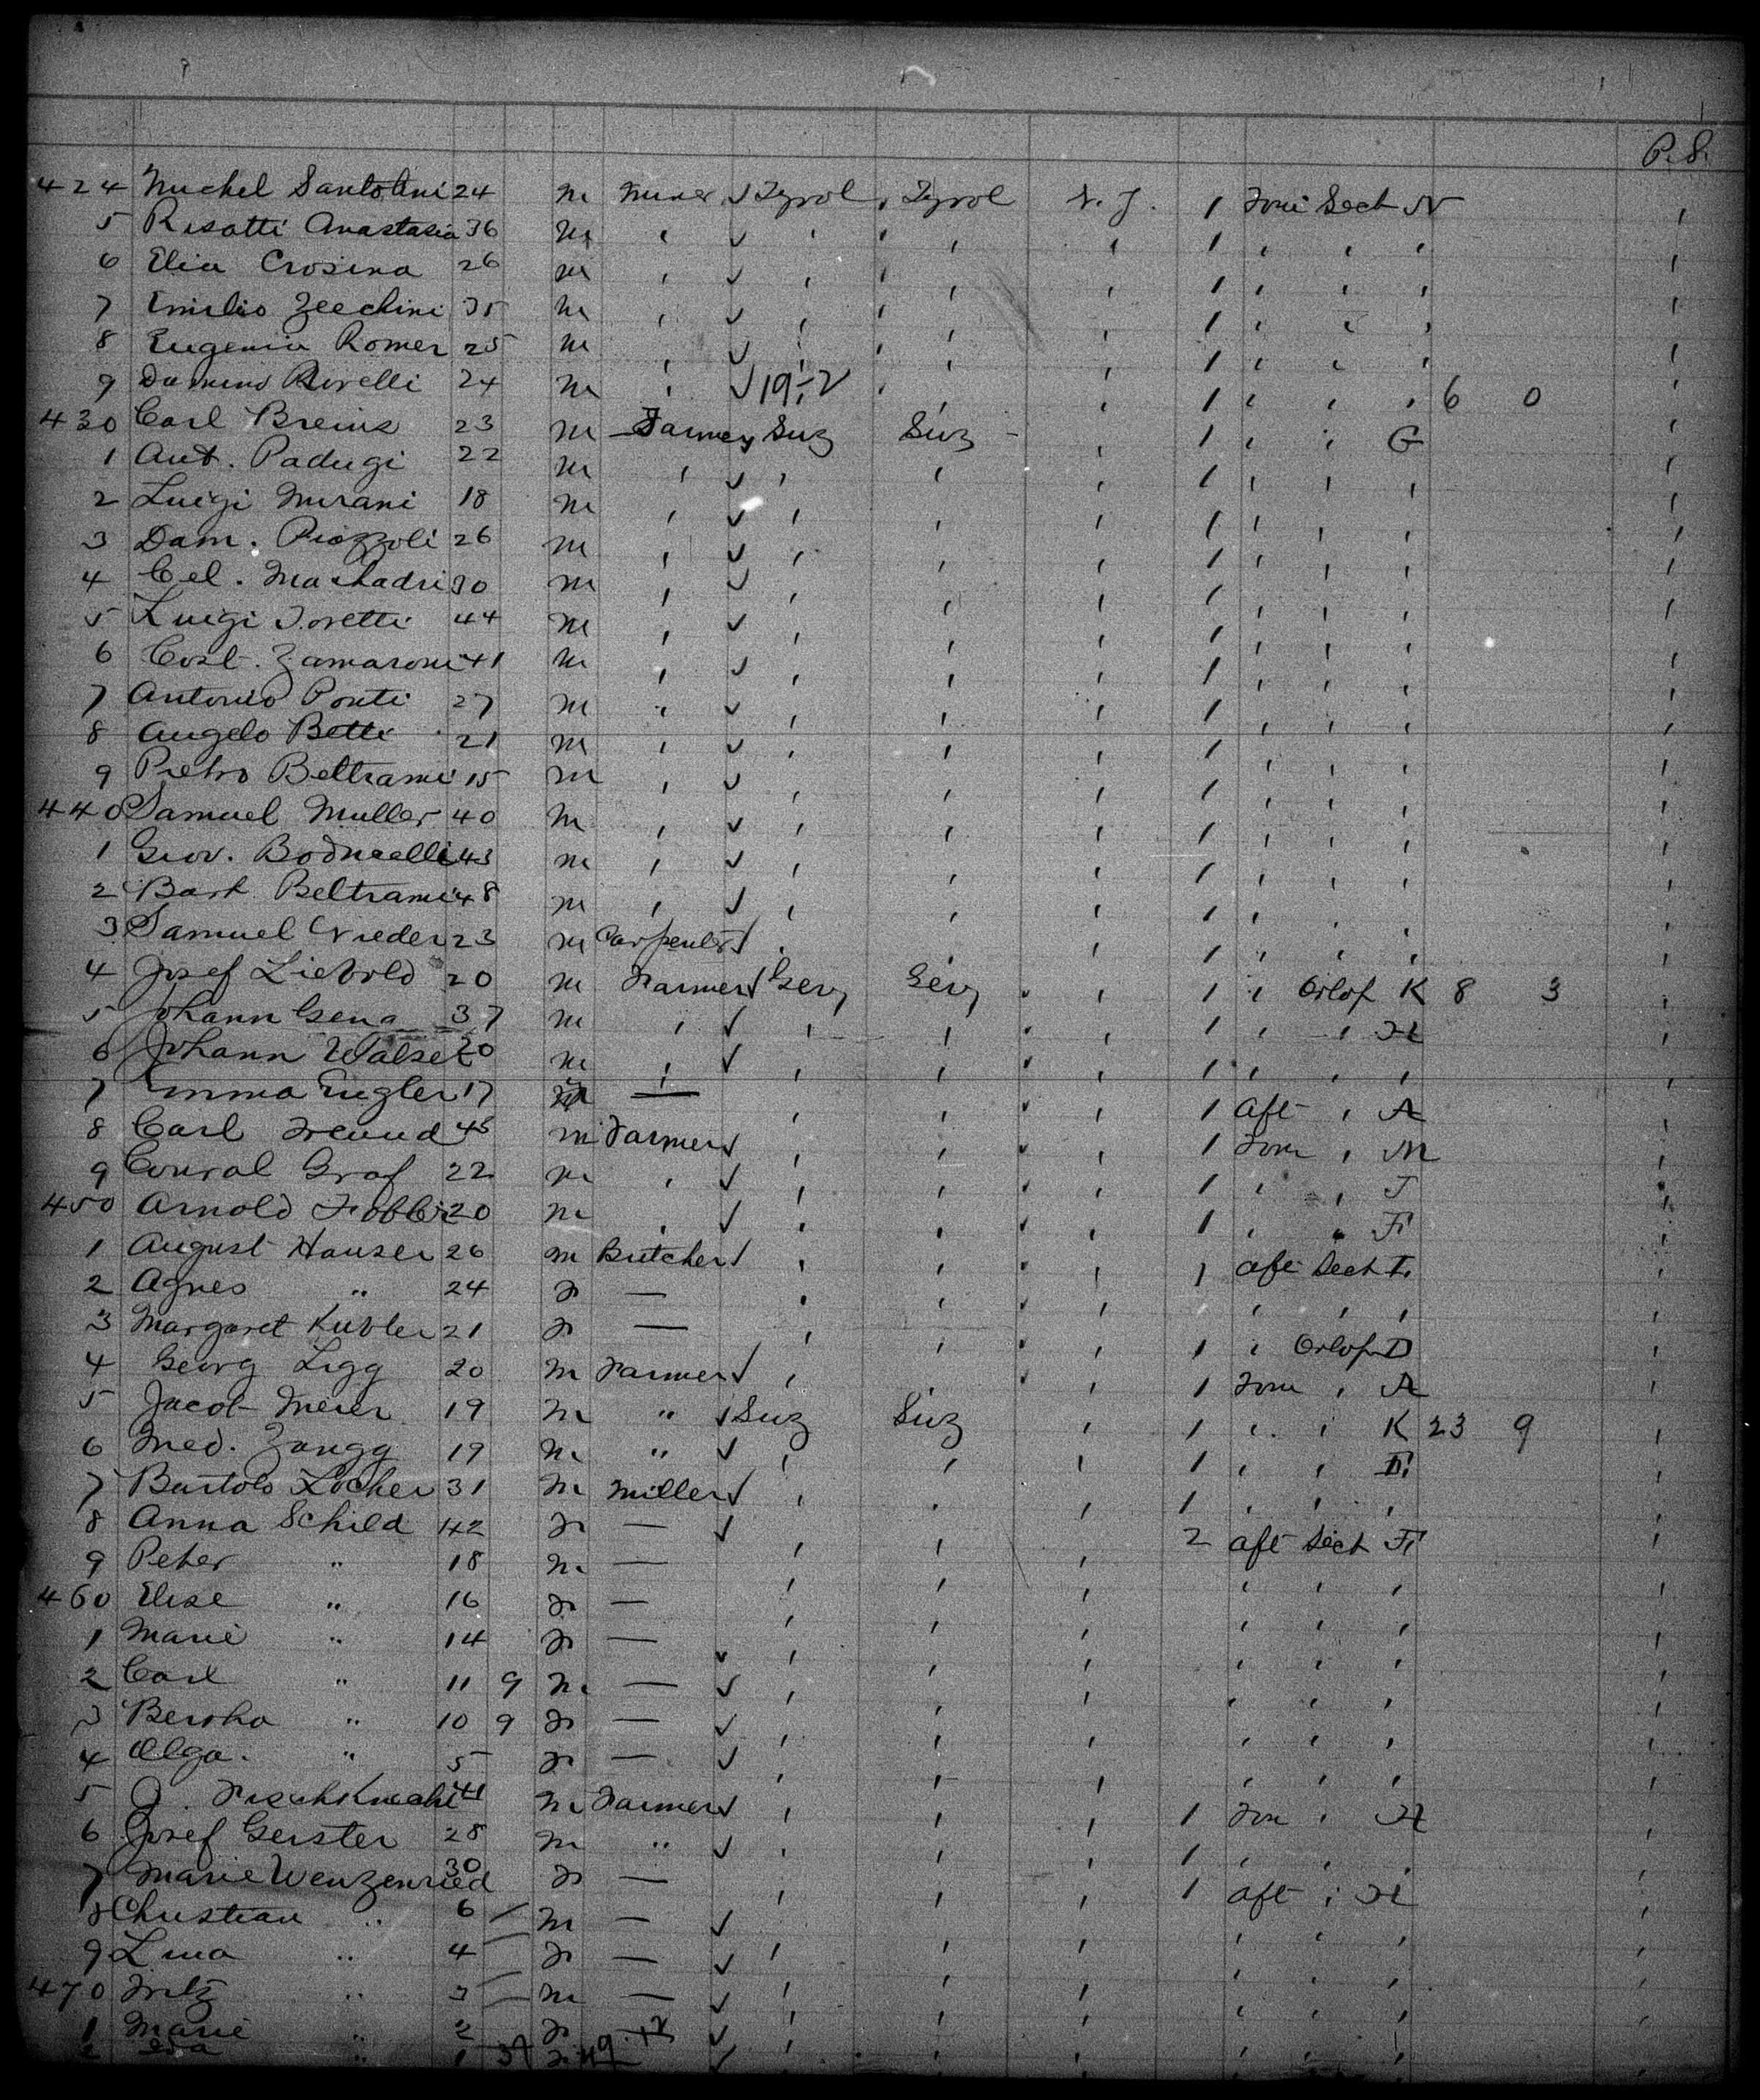 P.S.
424 Michel Santolini 24 m Miner ✓ Tyrol , Tyrol N.Y. 1 Fore Sect N ,
5 Risatti Anastasia 36 m , ✓ , , , , 1 , , , ,
6 Elia Crosina 26 m , ✓ , , , , 1 , , , ,
7 Emilio Zecchini 35 m , ✓ , , , , 1 , , , ,
8 Eugenio Romer 25 m , ✓ , , , , 1 , , , ,
9 Damino 24 m , ✓ 19-2 , , , 1 , , , 6 0 ,
430 Carl 23 m Farmer Suz Suz - , 1 , , G ,
1 Ant. Padugi 22 m , ✓ , , , 1 , , , ,
2 Luigi 18 m , ✓ , , , 1 , , , ,
3 Dam. Piazzoli 26 m , ✓ , , , 1 , , , ,
4 Cel. 30 m , ✓ , , , 1 , , , ,
5 Luigi 44 m , ✓ , , , 1 , , , ,
6 Cost. Zamaroni 41 m , ✓ , , , 1 , , , ,
7 Antonio Ponti 27 m , ✓ , , , 1 , , , ,
8 Angelo Betti 21 m , ✓ , , , 1 , , , ,
9 Pietro Beltrami 15 m , ✓ , , , 1 , , , ,
440 Samuel Muller 40 m , ✓ , , , 1 , , , ,
1 Giov. 43 m , ✓ , , , 1 , , , ,
2 Bart. Beltrami 48 m , ✓ , , , 1 , , , ,
3 Samuel 23 m Carpenter ✓ , , , 1 , , , ,
4 Josef Liebold 20 m Farmer ✓ Gery Gery , , 1 , Orlop K 8 3 ,
5 Johann 37 m , ✓ , , , , 1 , , H ,
6 Johann Walser 20 m , ✓ , , , , 1 , , , ,
7 Emma Engler 17 — , , , , 1 aft , A
8 Carl Freund 45 m Farmer ✓ , , , , 1 Fore , M ,
9 Conrad Graf 22 m , ✓ , , , , 1 , , J ,
450 Arnold 20 m , ✓ , , , , 1 , , F ,
1 August Hauser 26 m Butcher ✓ , , , , 1 aft Sect F ,
2 Agnes " 24 f — , , , , , , , ,
3 Margaret Kubler 21 f — , , , , 1 , Orlop D ,
4 Georg Ligg 20 m Farmer ✓ , , , , 1 Fore , A ,
5 Jacob Meier 19 m " ✓ Suz Suz , 1 , , K 23 9 ,
6 Med. Zangg 19 m " ✓ , , , 1 , , ,
7 Bartolo Locher 31 m Miller ✓ , , , 1 , , , ,
8 Anna Schild 42 f — ✓ , , , 2 aft Sect F ,
9 Peter " 18 m — , , , , , , ,
460 Elise " 16 f — , , , , , ,
1 Marie " 14 f — ✓ , , , , , , ,
2 Carl " 11 9 m — ✓ , , , , , , ,
3 Bertha " 10 9 f — ✓ , , , , , , ,
4 Olga " 5 f — ✓ , , , , , , ,
5 J. Fischknecht 41 m Farmer ✓ , , , 1 Fore , H ,
6 Josef Gerster 28 m " ✓ , , , 1 , , , ,
7 Marie Wenzenried 30 f — , , , 1 aft , H ,
8 Christian " 6 m — ✓ , , , , , ,
9 Lina " 4 f — ✓ , , , , , , ,
470 Fritz " 3 m — ✓ , , , , , , ,
1 Marie " 2 f ✓ , , , , , , ,
2 " 1 ✓ , , , , , ,